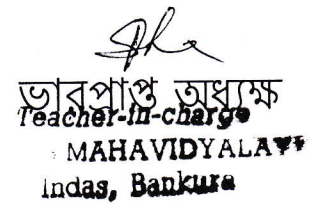 ভারপ্রাপ্ত অধ্যক্ষ
Teacher-in-charge
MAHAVIDYALAYA
Indas, Bankura